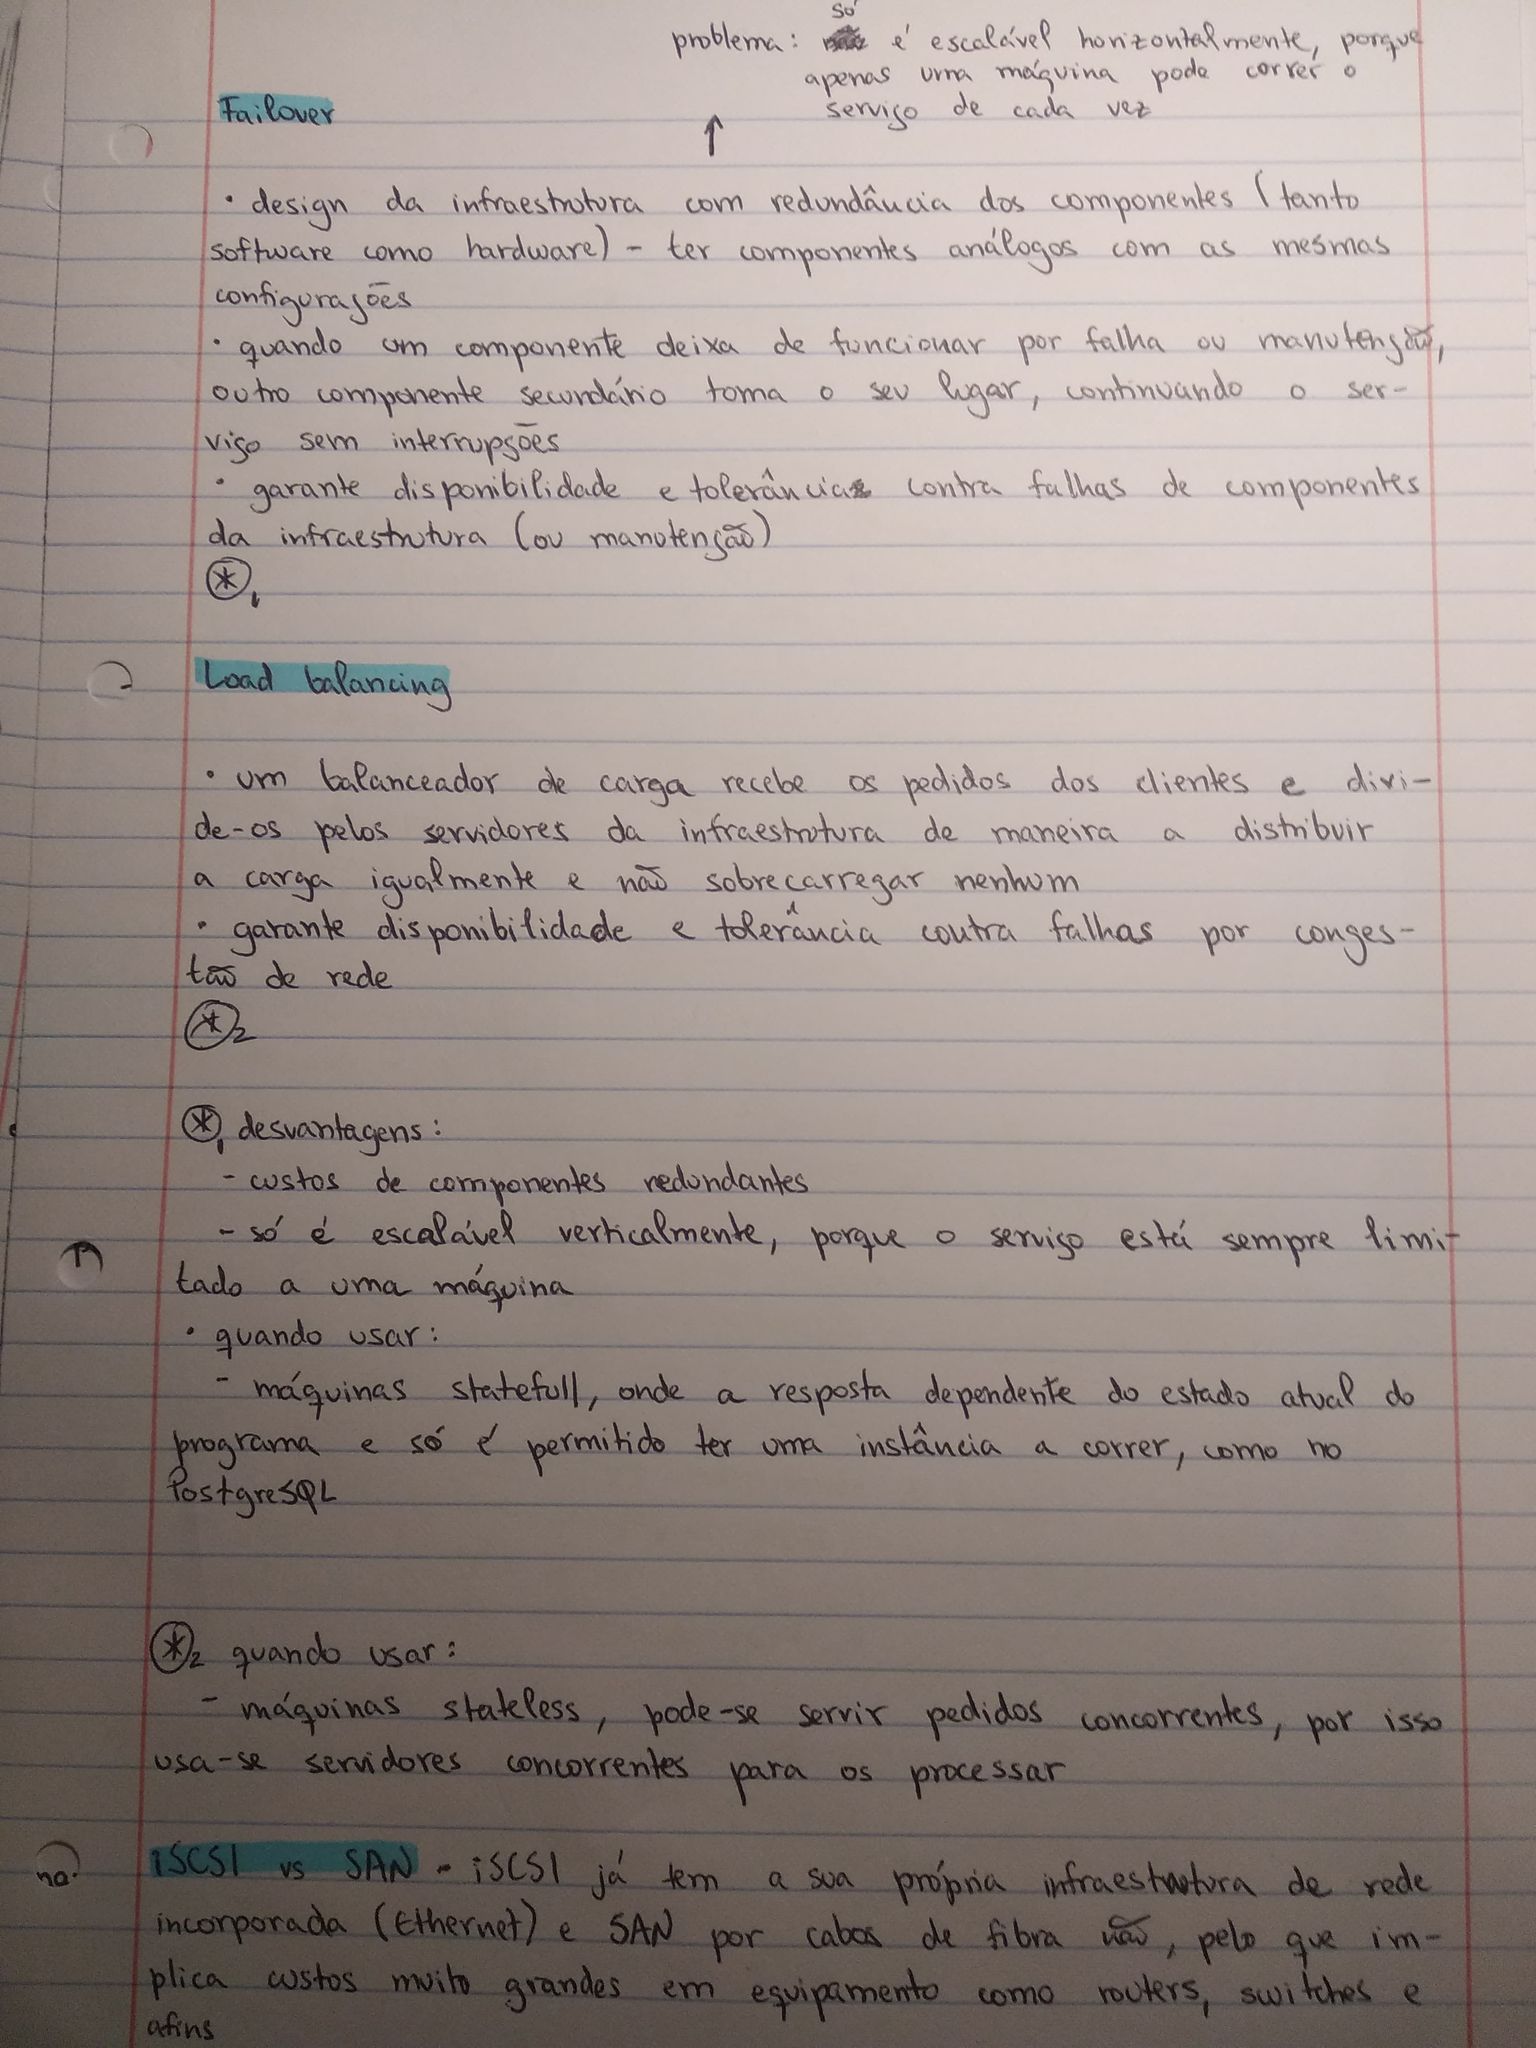 problema: só é escalável horizontalmente, porque
apenas uma máquina pode correr o
serviço de cada vez
Failover
• design da infraestrutura com redundância dos componentes (tanto
software como hardware) - ter componentes análogos com as mesmas
configurações
• quando um componente deixa de funcionar por falha ou manutenção,
outro componente secundário toma o seu lugar, continuando o ser-
viço sem interrupções
• garante disponibilidade e tolerância contra falhas de componentes
da infraestrutura (ou manutenção)
*1
Load balancing
• um balanceador de carga recebe os pedidos dos clientes e divi-
de-os pelos servidores da infraestrutura de maneira a distribuir
a carga igualmente e não sobrecarregar nenhum
• garante disponibilidade e tolerância contra falhas por conges-
tão de rede
*2
*1 desvantagens:
- custos de componentes redundantes
- só é escalável verticalmente, porque o serviço está sempre limi-
tado a uma máquina
• quando usar:
- máquinas statefull, onde a resposta dependente do estado atual do
programa e só é permitido ter uma instância a correr, como no
PostgreSQL
*2 quando usar:
- máquinas stateless, pode-se servir pedidos concorrentes, por isso
usa-se servidores concorrentes para os processar
iSCSI vs SAN - iSCSI já tem a sua própria infraestrutura de rede
incorporada (Ethernet) e SAN por cabos de fibra não, pelo que im-
plica custos muito grandes em equipamento como routers, switches e
afins